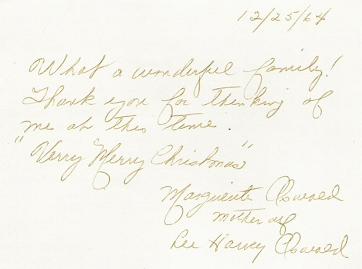 12/25/64
What a wonderful family!
Thank you for thinking of
me at this time.
"Verry Merry Christmas"
Marguerite Oswald
mother of
Lee Harvey Oswald